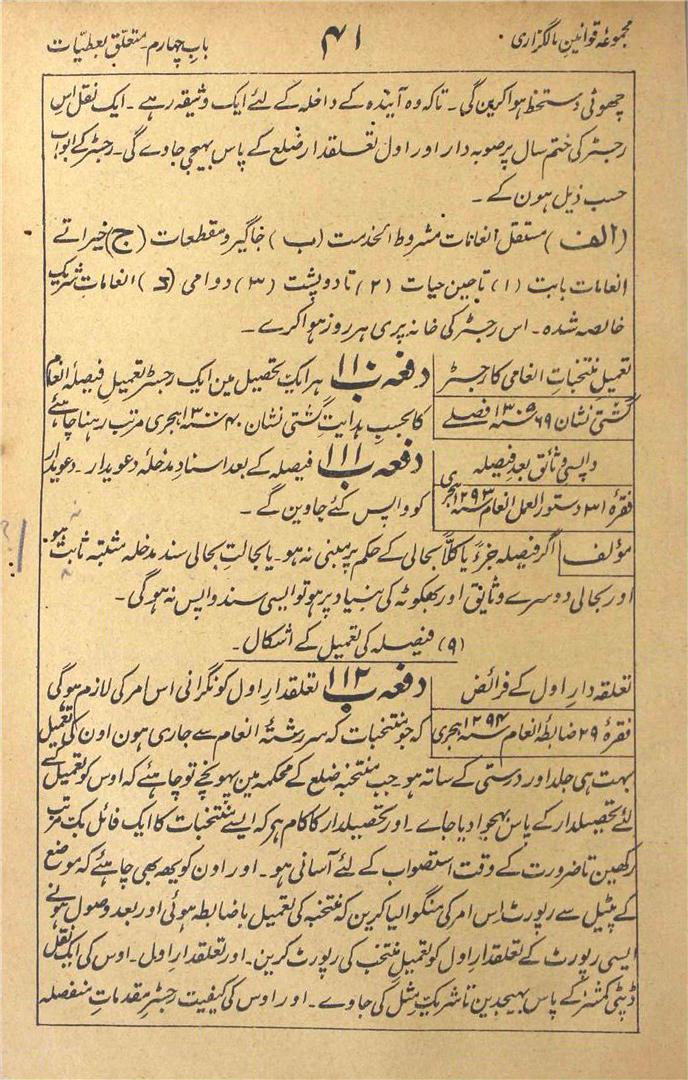 مجموعۂ قوانین مالگزاری
۴۱
باب چہارم۔ متعلق بعطیات
چھوٹی دستخط ہوا کرین گی۔ تاکہ وہ آیندہ کے داخلہ کے لئے ایک وثیقہ رہے۔ ایک نقل اس
رجسٹر کی ختم سال پر صوبہ دار اور اول تعلقدار ضلع کے پاس بھیجی جاوے گی۔ رجسٹر کے ابواب
حسب ذیل ہون کے۔
(الف) مستقل انعامات مشروط الخدمت (ب) جاگیر و مقطعات (ج) خیراتے
انعامات بابت (۱) تاحین حیات (۲) تا دو پشت (۳) دوامی (د) انعامات شریک
خالصہ شدہ۔ اس رجسٹر کی خانہ پری ہر روز ہوا کرے۔
تعمیل منتخبات انعامی کا رجسٹر
گشتی نشان ۶۹ سنہ ۱۳۰۵ فصلے
دفعہ ۱۱۰ ب ہر ایک تحصیل مین ایک رجسٹر تعمیل فیصلۂ انعام
کا بجسب ہدایت گشتی نشان ۴۰ سنہ ۱۳۰۰ ہجری مرتب رہنا چاہئے
واپسی وثائق بعد فیصلہ
فقرۂ ۳۱ دستور العمل انعام سنہ ۱۲۹۳ ہجری
دفعہ ۱۱۱ ب فیصلہ کے بعد اسناد مدخلۂ دعویدار۔ دعویدار
کو واپس کئے جاوین گے۔
مؤلف اگر فیصلہ جزءً یا کلاً بحالی کے حکم پر مبنی نہ ہو۔ یا بحالت بحالی سند مدخلہ مشتبہ ثابت ہو
اور بحالی دوسرے وثایق اور بھگوٹہ کی بنیاد پر ہو تو ایسی سند واپس نہ ہو گی۔
(۹) فیصلہ کی تعمیل کے اشکال۔
تعلقہ دار اول کے فرائض
فقرۂ ۲۹ ضابطۂ انعام سنہ ۱۲۹۴ ہجری
دفعہ ۱۱۲ ب تعلقدار اول کو نگرانی اس امر کی لازم ہو گی
کہ جو منتخبات کہ سررشتۂ انعام سے جاری ہون اون کی تعمیل
بہت ہی جلد اور درستی کے ساتھ ہو۔ جب منتخبہ ضلع کے محکمہ مین پہونچے تو چاہئے کہ اوس کو تعمیل کے
لئے تحصیلدار کے پاس بھجوا دیا جاے۔ اور تحصیلدار کا کام ہے کہ ایسے منتخبات کا ایک فائل بک مرتب
رکھین تا ضرورت کے وقت استصواب کے لئے آسانی ہو۔ اور اون کو یہ بھی چاہئے کہ موضع
کے پٹیل سے رپورٹ اس امر کی منگوا لیا کرین کہ منتخبہ کی تعمیل باضابطہ ہوئی اور بعد وصول ہونے
ایسی رپورٹ کے تعلقدار اول کو تعمیل منتخب کی رپورٹ کرین۔ اور تعلقدار اول۔ اوس کی ایک نقل
ڈپٹی کمشنر کے پاس بھیجدین تا شریک مثل کی جاوے۔ اور اوس کی کیفیت رجسٹر مقدمات منفصلہ